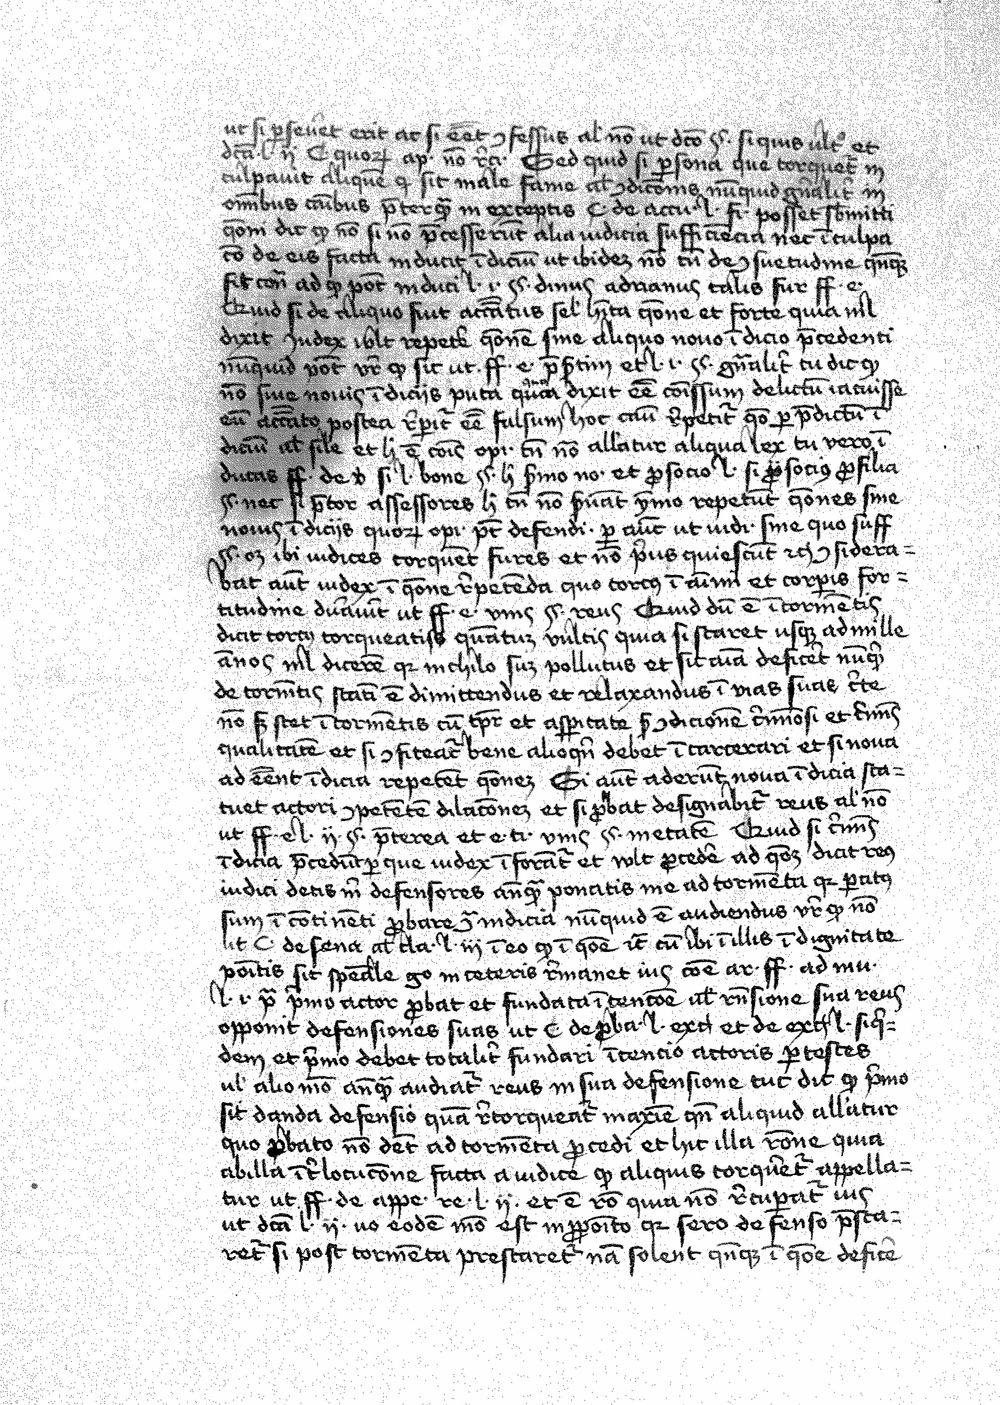 ut si ꝑseu̾et erit ac si eēt ɔfessus al̾ nō ut dcō §. si quis ult̾o et
dcā l. ij C quoꝝ ap. nō r̾ci. Sed quid si ꝑsona que torquet̾ in
culpauit aliquē qi sit male fame al̾ ɔdicōnis nūquid gn̄alit̾ in
om̄ibus cāibus p̄terqͣ in exceptis C. de accu. l. fi. posset sb̾mitti
qōni dic qp nō si nō p̄cesserūt alia iudicia sufficiēcia nec īculpa
tō de eis facta inducit īdiciū ut ibidez nō tn̄ de ɔsuetudine qn̄qꝫ
fit cōn̄ ad qp pōt induci l. i. §. diuus adrianus talis fur ff. e.
Quid si de aliquo fiut accātus sel̾ hīta qōne et forte quia nil̾
dixit Iudex vult repetē qōnē sine aliquo nouo īdicio p̄cedenti
nūquid pōt vr̄ qp sic ut. ff. e. p̄ p̄tim et l. i. §. gn̄alit̾ tu dic qp
nō sine nouis īdiciis puta dixit eē cōissum delictū iacuisse
eū accāto postea r̄perit̾ eē falsum hoc cāu r̄petit̾ qō ꝑ p̄dictū ī
diciū al̾ sile et hͥ ē cōis opi. tn̄ nō allatur aliqua lex tu vero ī
ducas ff. de v̄ si l. bone §. hͥ p̄mo no. et ꝓ socio l. si ꝓ socio ꝓ filia
§. nec si p̄tor assessores hͥ tn̄ nō s̾uāt ymo repetūt qōnes sine
nouis īdiciis quoꝝ opi. pt̄ defendi. ꝑ aut̄ ut uidi. sine quo suff
§. oꝫ ibi iudices torquēt fures et nō p̄us quiescūt ɔsidera=
bat aut̄ iudex ī qōne r̄petēda quo torcꝰ ī aīmi et corp̄is for=
titudine dūauit̄ ut ff. e. vnis §. reus Quid dū ē ī tormētis
dicit torcꝰ torqueatis quātuꝫ vultis quia si staret usqꝫ ad mille
ānos nil̾ dicerē qr̄ inchilo suꝫ pollutus et sic cuā deficēt nūqͥ
de tormētis statī ē dimittendus et relaxandus ī vias suas c̄te
nō sꝫ stet ī tormētis cū tp̄r et asp̄itate ɔdicionē c̄iminosi et c̄imīs
qualitatē et si ɔfiteat̾ bene alioqn̄ debet ī carcerari et si noua
ad eēnt īdicia repetēt qōneꝫ Si aut̄ aderūt noua īdicia sta=
tuet actori ɔpetētē dilacōneꝫ et si ꝓbat designabit̾ reus al̾ nō
ut ff. e l. ij §. p̄terea et e. ti. vnis §. metatē Quid si c̄imīs
īdicia p̄cedūt ꝑ que iudex īformāt̾ et wlt ꝓcedē ad qōeꝫ dicit reꝰ
iudici detis m̄ defensores anqͣ ponatis me ad tormēta qr̄ paratꝰ
sum ī cōtinēti ꝓbare ɔ indicia nūquid ē audiendus vr̄ qp nō
lic C de sena al̾ cla. l. iij ī eo qp ī qōe ic̄ cū ibi ī illis ī dignitate
poītis sic speāle go in ceteris r̄manet iuſ cōe ar. ff. ad mu.
l. i. p̄ p̄mo actor ꝓbat et fundata ītencōe al̾ rn̄sione sua reus
opponit defensiones suas ut C de ꝓba. l. exci et de exci l. siqͥ=
dem et p̄mo debet totalit̾ fundari ītencio actoris ꝑ testes
ul̾ alio mō anqͣ audiat̾ reus in sua defensione tūc dic qp p̄mo
sit danda defensio quā r̄torqueat̾ maxīe qn̄ aliquid allatur
quo ꝓbato nō det ad tormēta ꝓcedi et hic illa rōne quia
ab illa īt̾locutōne facta a iudice qp aliquis torquet̾ appella=
tur ut ff. de appe. re. l. ij. et ē rō quia nō r̄cuperat̾ iuſ
ut dcā l. ij. uo eodē mō est in ꝓpōito qr̄ sero defenso p̄sta=
ret̾ si post tormēta prestaret̾ nā solent qn̄qꝫ ī qōe deficē